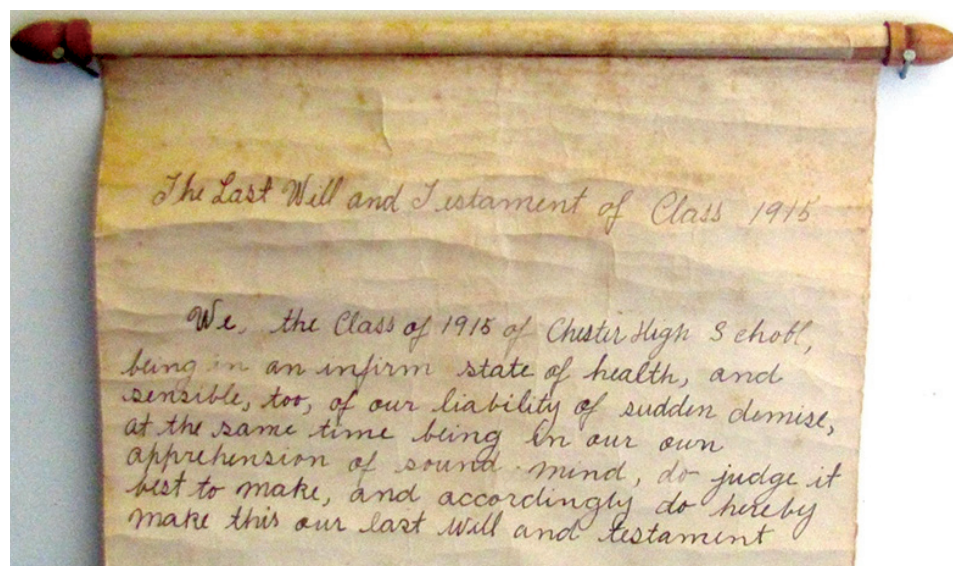 The Last Will and Testament of Class 1915
We, the Class of 1915 of Chester High School,
being in an infirm state of health, and
sensible, too, of our liability of sudden demise,
at the same time being in our own
apprehension of sound mind, do judge it
best to make, and accordingly do hereby
make this our last will and testament